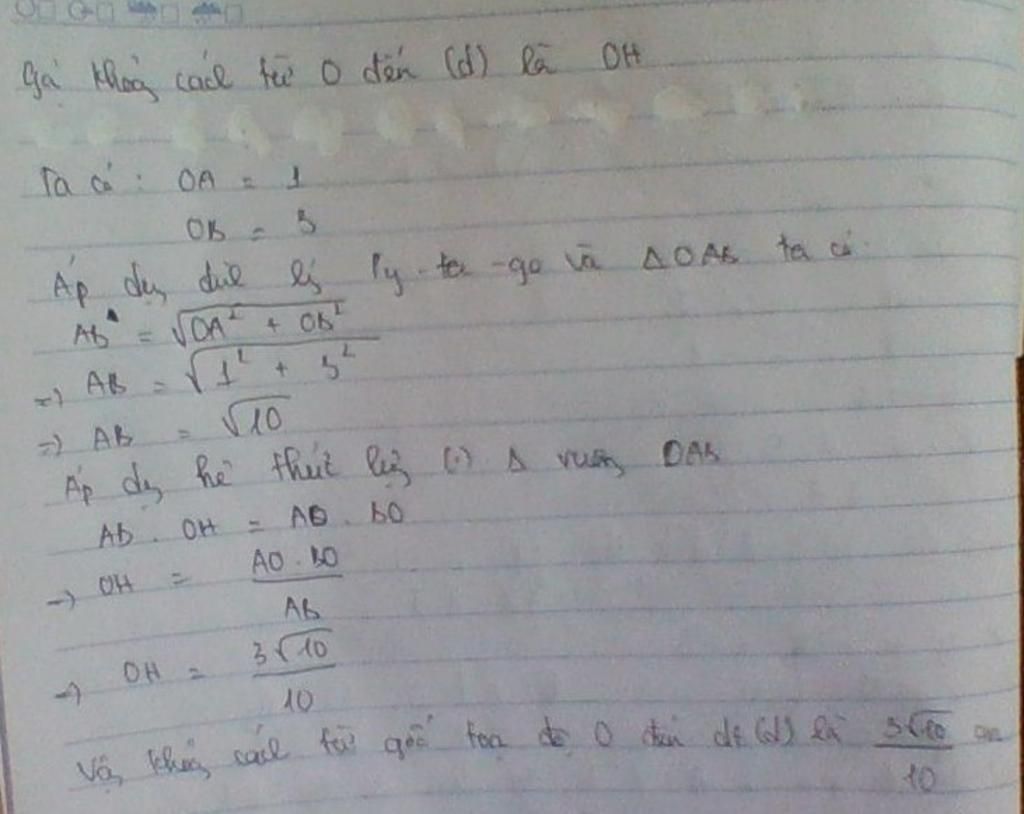 Gọi khoảg cách từ O đến (d) là OH
Ta có : OA = 1
OB = 3
Áp dụg định lý Py-ta-go và △OAB ta có
AB = √OA² + OB²
=> AB = √1² + 3²
=> AB = √10
Áp dụg hệ thức lượg (.) △ vuôg OAB
AB . OH = AO . BO
-> OH = AO . BO / AB
-> OH = 3√10 / 10
Vậy khoảg cách từ gốc tọa độ O đến đt (d) là 3√10 / 10